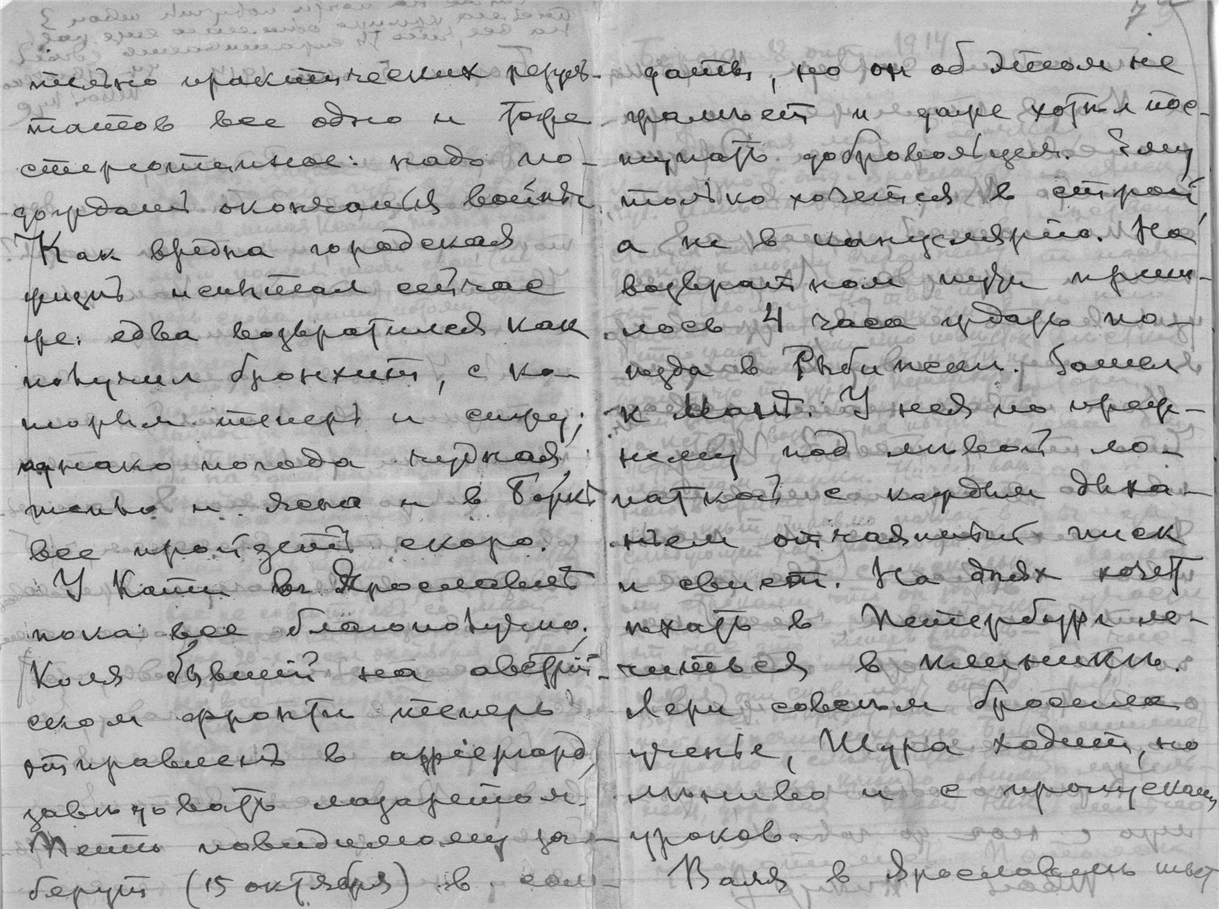 тельно практических резуль-
татов все одно и тоже
стереотипное: надо по-
дождать окончанья войны.
Как вредна городская
жизнь испытал сейчас
же: едва возвратился как
получил бронхит, с ко-
торым теперь и сижу;
однако погода чудная,
тепло и ясно и в Боркѣ
все пройдетъ скоро.
У Кати въ Ярославлѣ
пока все благополучно.
Коля бывшій на австрій-
ском фронтѣ теперь
отправленъ в аррiергард,
завѣдовать лазаретом.
Митю повидимому за-
берут (15 октября) в сол-
даты, но он об этом не
и даже хотѣл пос-
тупать добровольцем. Ему
только хочется в строй
а не в канцелярію. На
возвратном пути приш-
лось 4 часа ждать по-
ѣзда в Рыбинске. Зашел
к Мант. У нея по преж-
нему под лѣвой ло-
паткой с каждым дыха-
ньем отчаянный писк
и свист. На днях хочет
ѣхать в Петербург ле-
читься в клиники.
Лери совсѣм бросила
ученье, Шура ходит, но
лѣниво и с пропусками
уроков.
Валя в Ярославль
1914